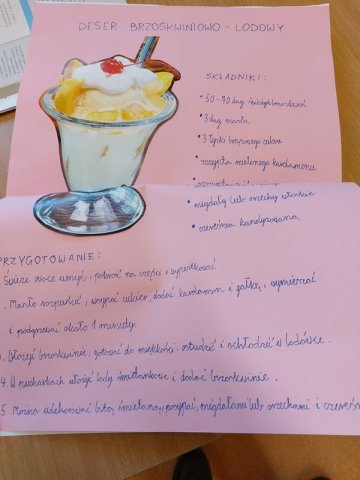 DESER BRZOSKWINIOWO - LODOWY
SKŁADNIKI:
• 50-90 dag świeżych brzoskwiń
• 3 dag masła
• 3 łyżki brązowego cukru
• szczypta mielonego kardamonu
• migdały lub orzechy włoskie
• czereśnia kandyzowana
PRZYGOTOWANIE:
Świeże owoce umyć, pokroić na części i wypestkować
. Masło rozpuścić, wsypać cukier, dodać kardamon i gałkę, wymieszać
i podgrzewać około 1 minuty.
Włożyć brzoskwinie, gotować do miękkości, ostudzić i schłodzić w lodówce.
4. W pucharkach ułożyć lody śmietankowe i dodać brzoskwinie.
5. Można udekorować bitą śmietaną, posypać migdałami lub orzechami i czereśni